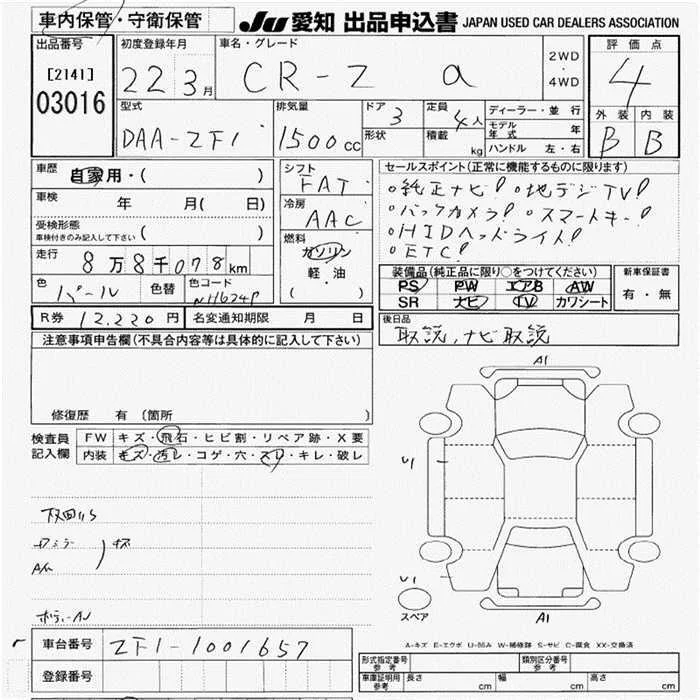 車内保管・守衛保管 JU 愛知 出品申込書 JAPAN USED CAR DEALERS ASSOCIATION
出品番号 初度登録年月 車名・グレード 評価点
[2141] 22 3月 CR-Z α 2WD・4WD 4
03016
型式 排気量 ドア 3 定員 4人 ディーラー・並行 外装 内装
DAA-ZF1 1500cc 形状 積載 kg モデル年式 年 B B
ハンドル 左・右
車歴 自家用・( )
車検 年 月( 日)
受検形態
車検付きのみ記入して下さい ( )
走行 8万8千078km
色 パール 色替 色コード NH624P
シフト FAT
冷房 AAC
燃料 ガソリン
軽・油
( )
セールスポイント(正常に機能するものに限ります)
○純正ナビ! ○地デジTV!
○バックカメラ! ○スマートキー!
○HIDヘッドライト!
○ETC!
装備品(純正品に限り○をつけてください) 新車保証書
PS PW エアB AW 有・無
SR ナビ TV カワシート
R券 12.220円 名変通知期限 月 日
後日品
取説,ナビ取説
注意事項申告欄(不具合内容等は具体的に記入して下さい)
修復歴 有(箇所 )
検査員 FW キズ・飛石・ヒビ割・リペア跡・X要
記入欄 内装 キズ・汚レ・コゲ・穴・スレ・キレ・破レ
A1
U1
U1
スペア
A1
A-キズ E-エクボ U-凹み W-補修跡 S-サビ C-腐食 XX-交換済
車台番号 ZF1-1001657
登録番号
形式指定番号 参考 類別区分番号 参考
車庫証明用 参考 長さ cm 幅 cm 高さ cm